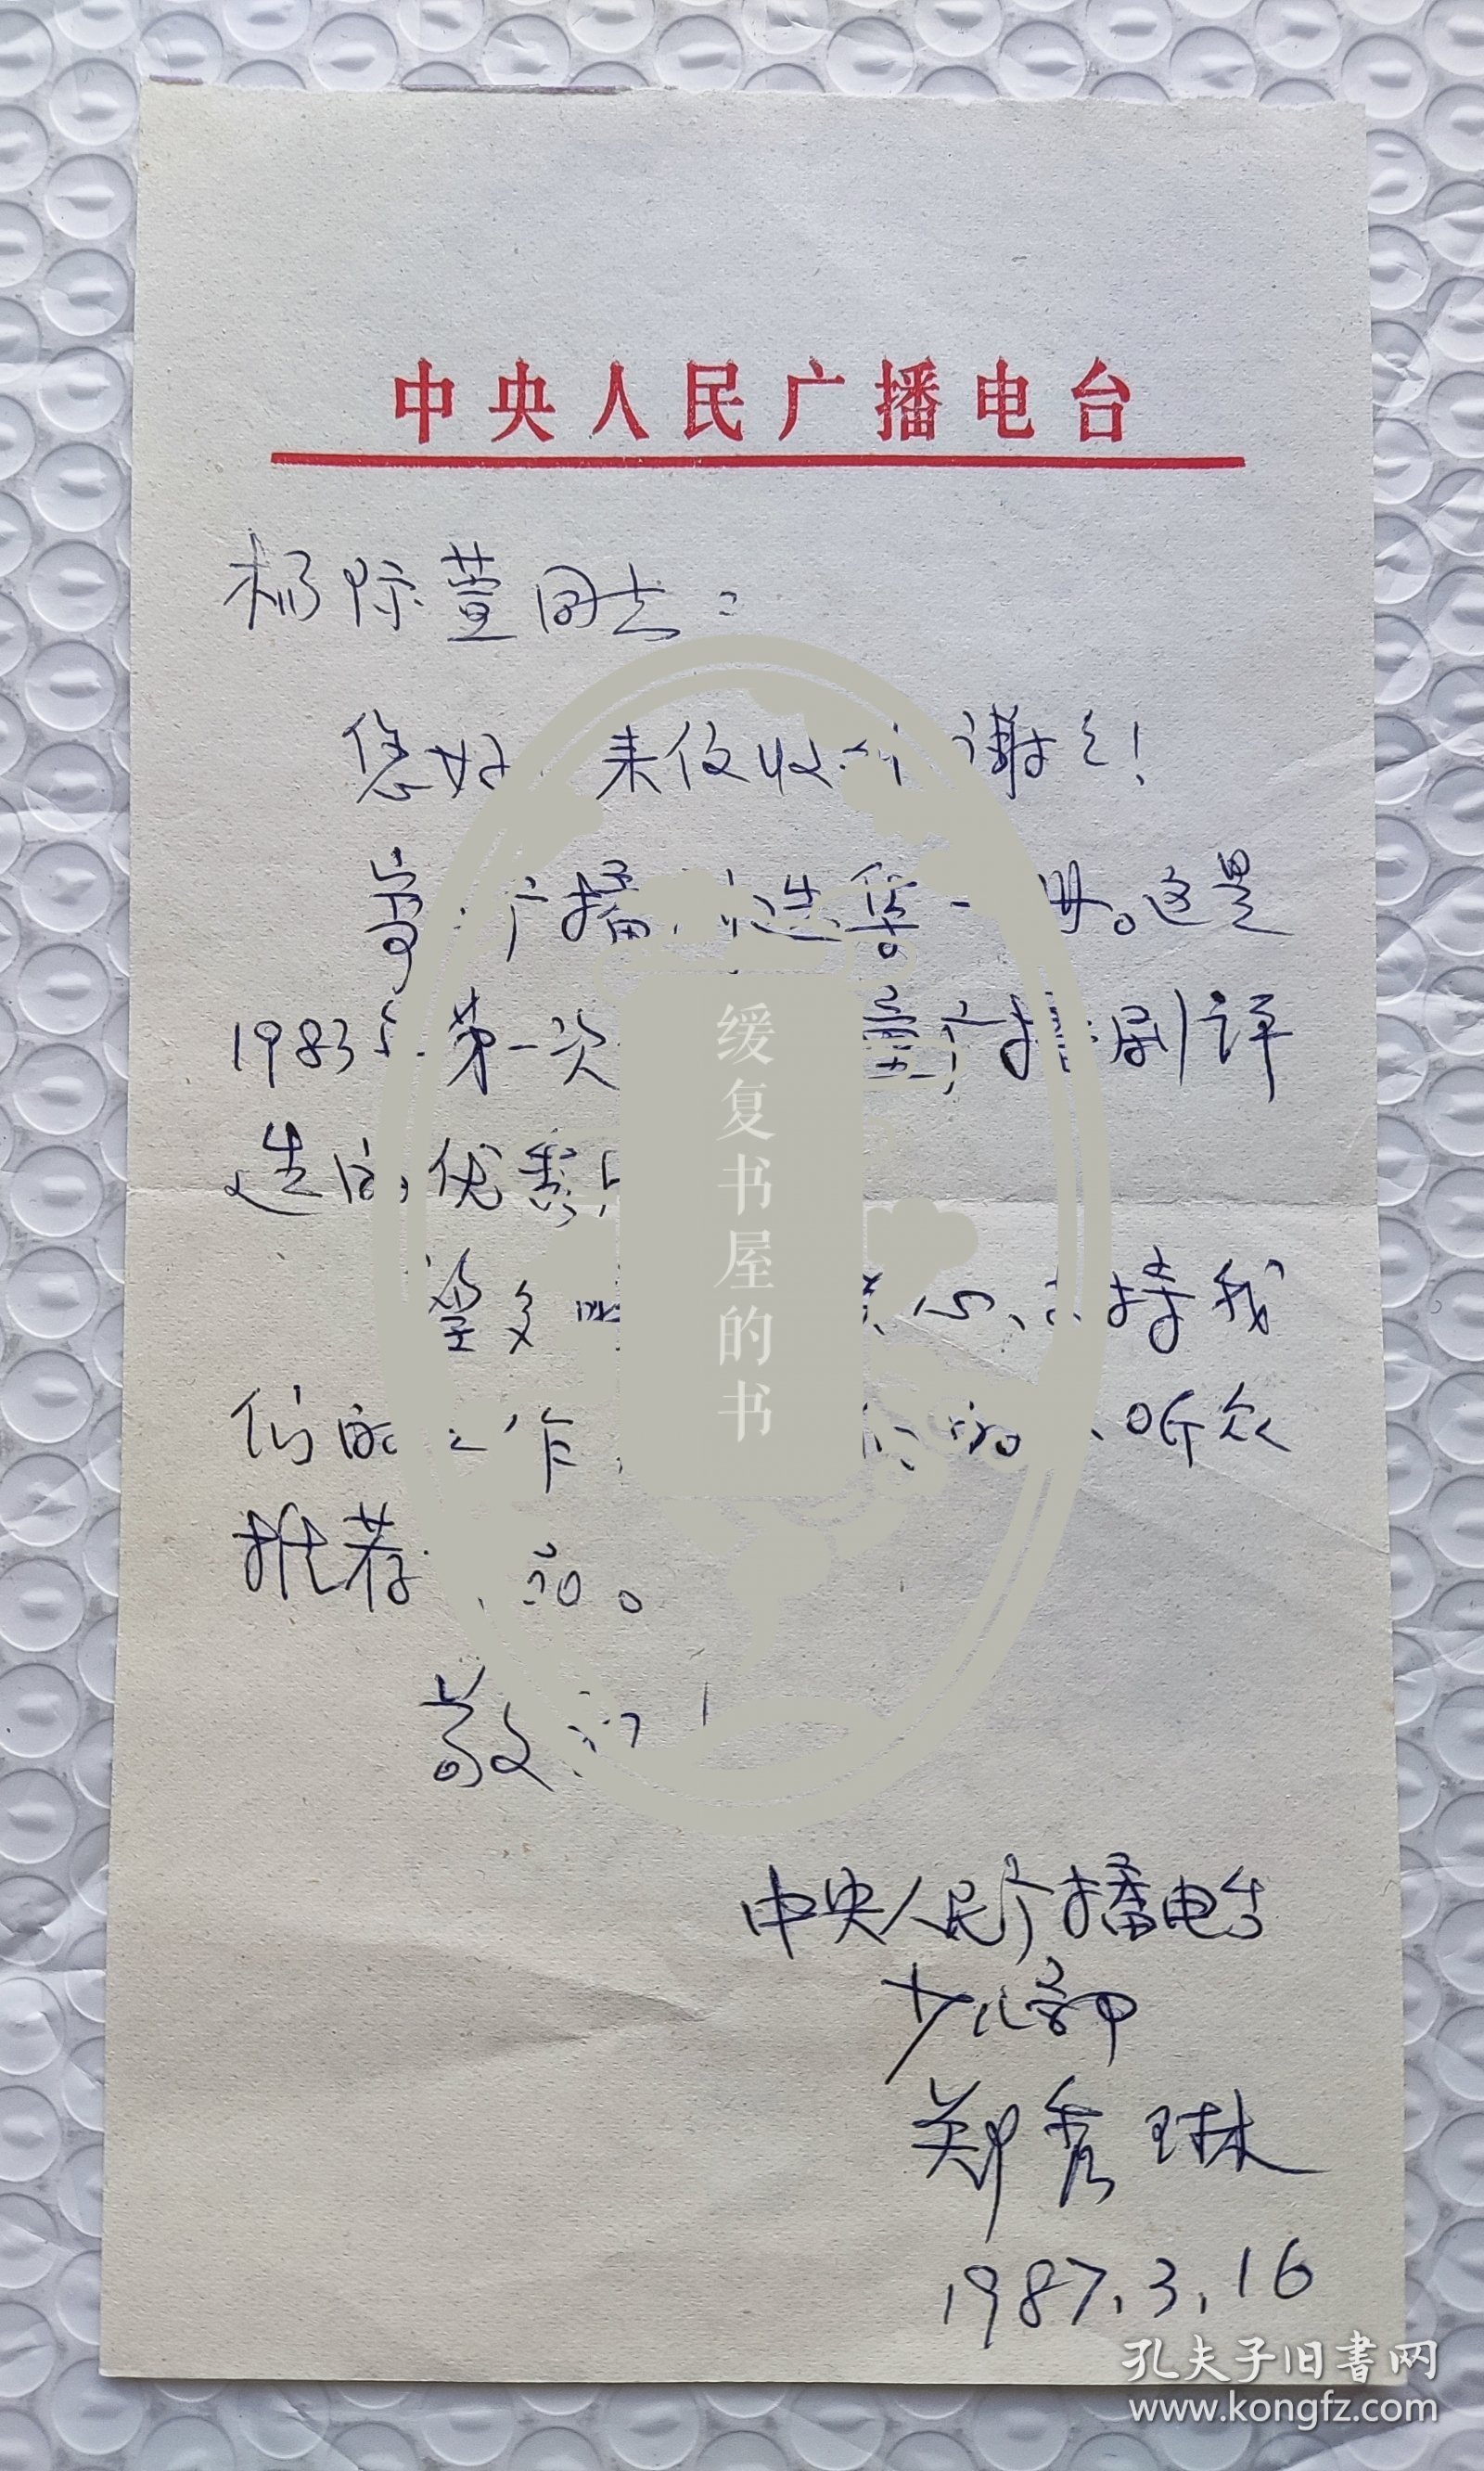 中央人民广播电台
杨际萱同志：
您好 来信收 谢谢！
寄 广播 选集一册。这是
1983年第一次 童广播剧评
选的优秀
望多 关心、支持我
们的工作 听众
推荐 品。
敬礼！
中央人民广播电台
少儿部
郑秀琳
1987.3.16
缓复书屋的书
孔夫子旧书网
www.kongfz.com